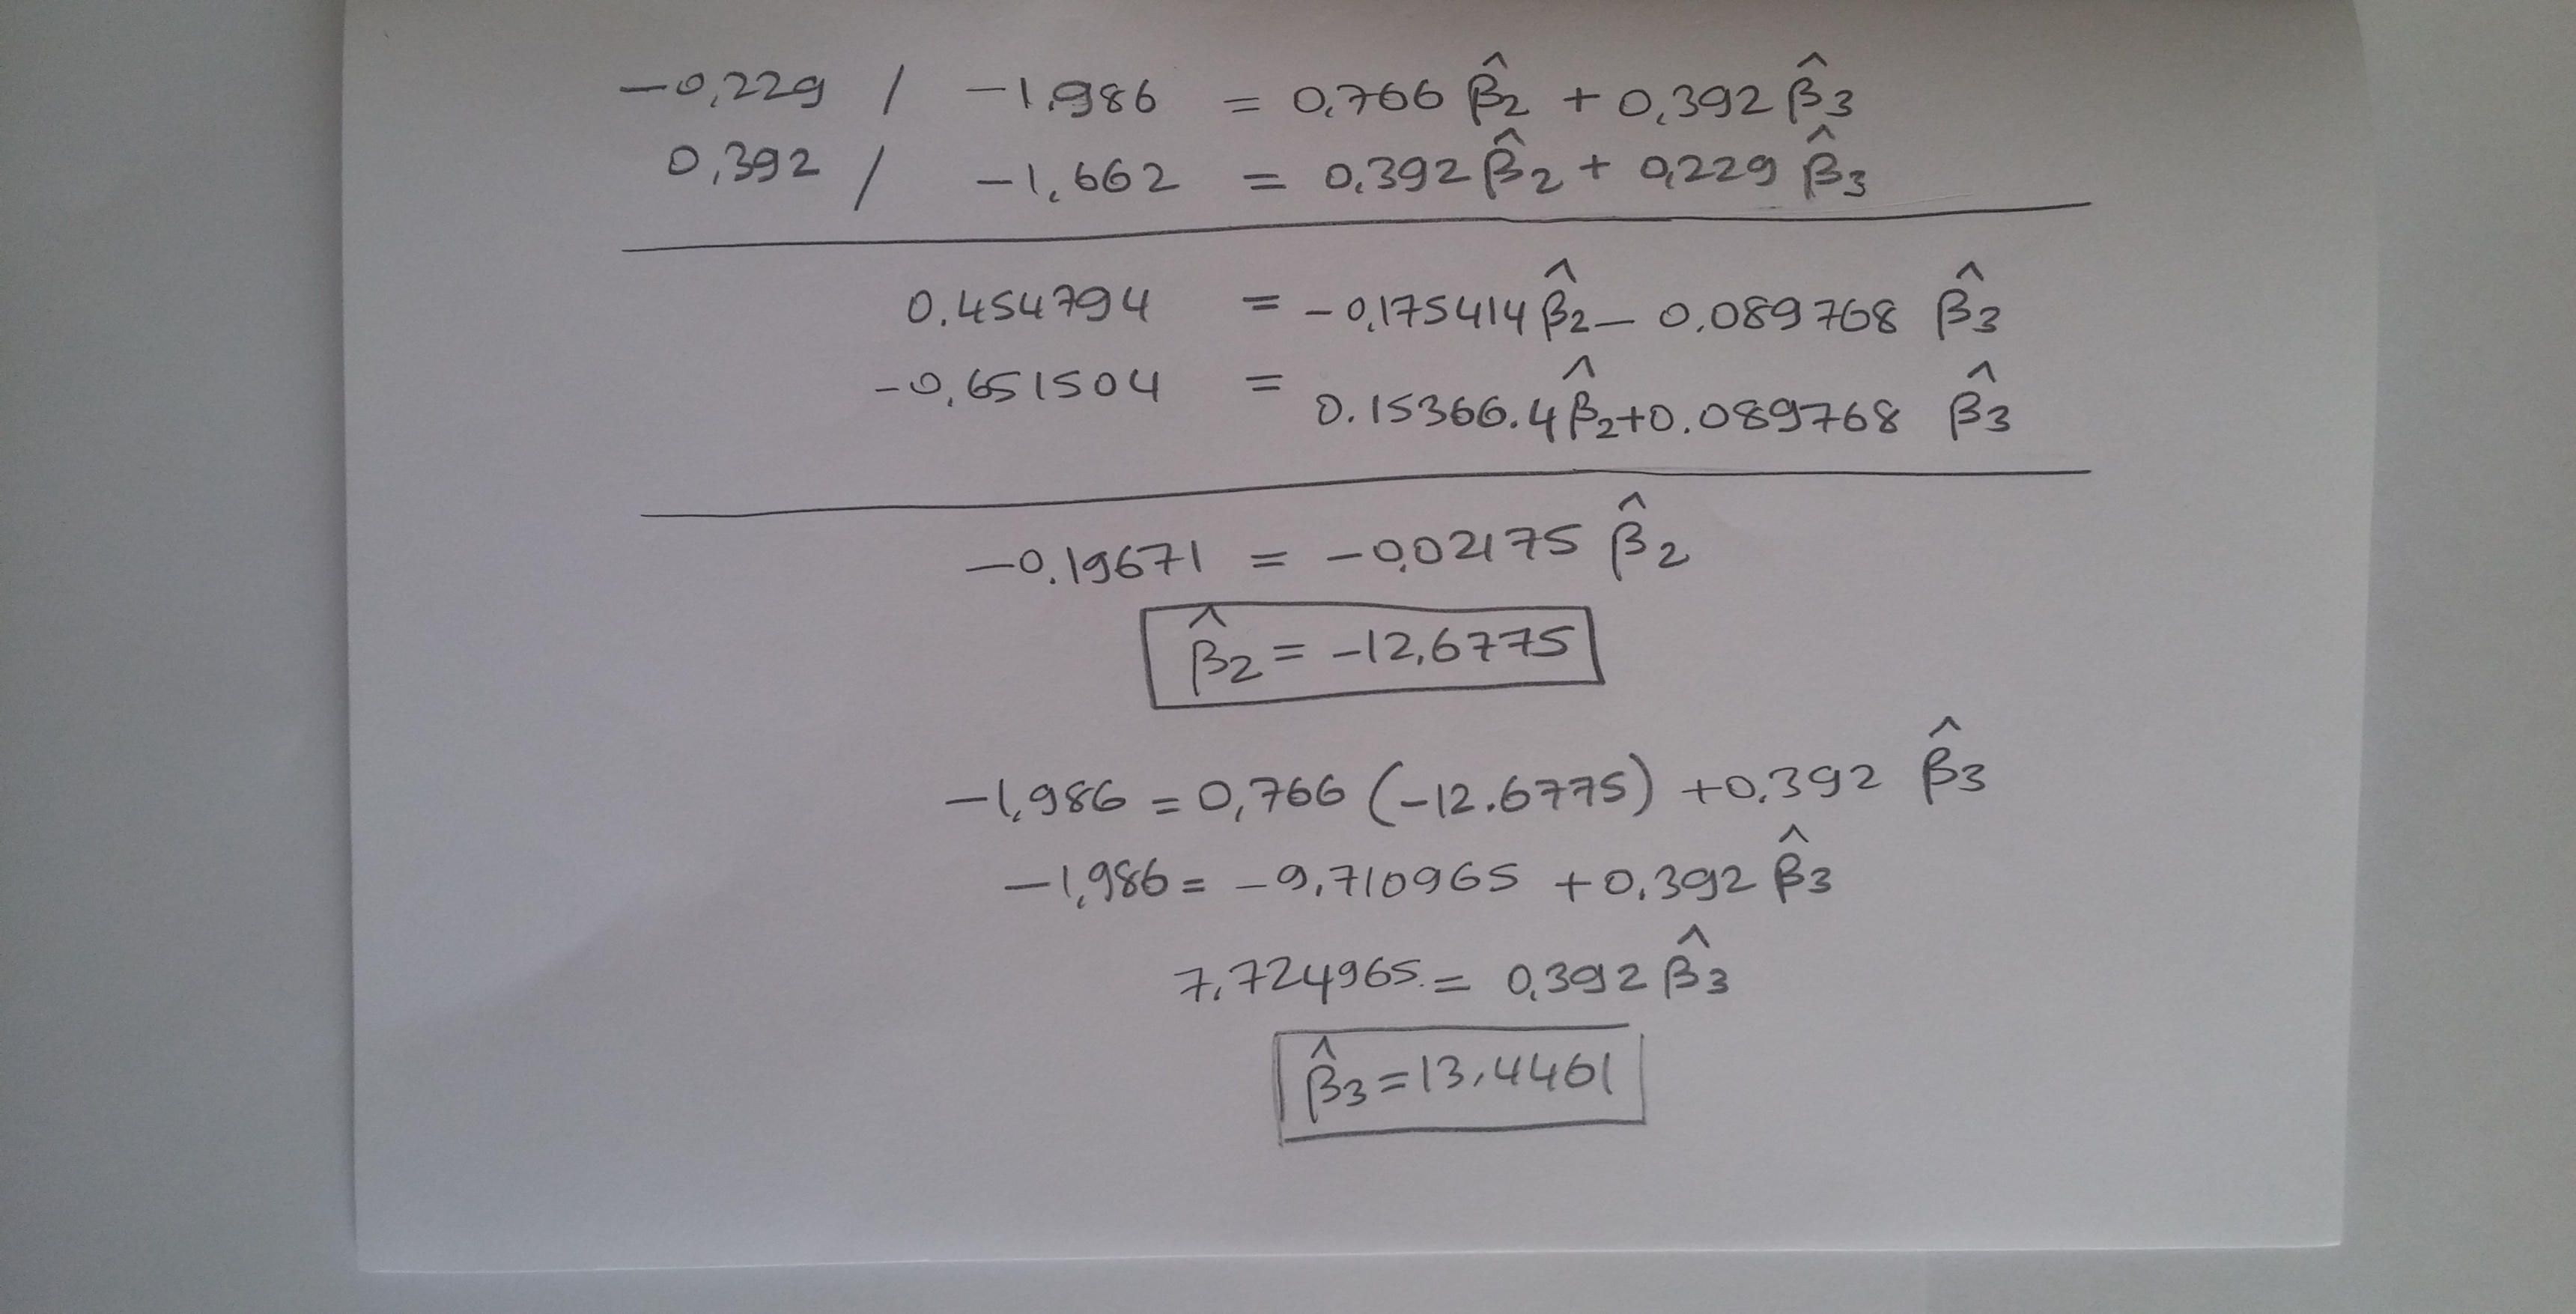 -0,229 / -1,986 = 0,766 β̂2 + 0,392 β̂3
0,392 / -1,662 = 0,392 β̂2 + 0,229 β̂3
0.454794 = -0,175414 β̂2 - 0.089768 β̂3
-0,651504 = 0.15366.4 β̂2 + 0.089768 β̂3
-0.19671 = -0,02175 β̂2
β̂2 = -12,6775
-1,986 = 0,766 (-12.6775) + 0,392 β̂3
-1,986 = -9,710965 + 0,392 β̂3
7,724965. = 0,392 β̂3
β̂3 = 13,4461